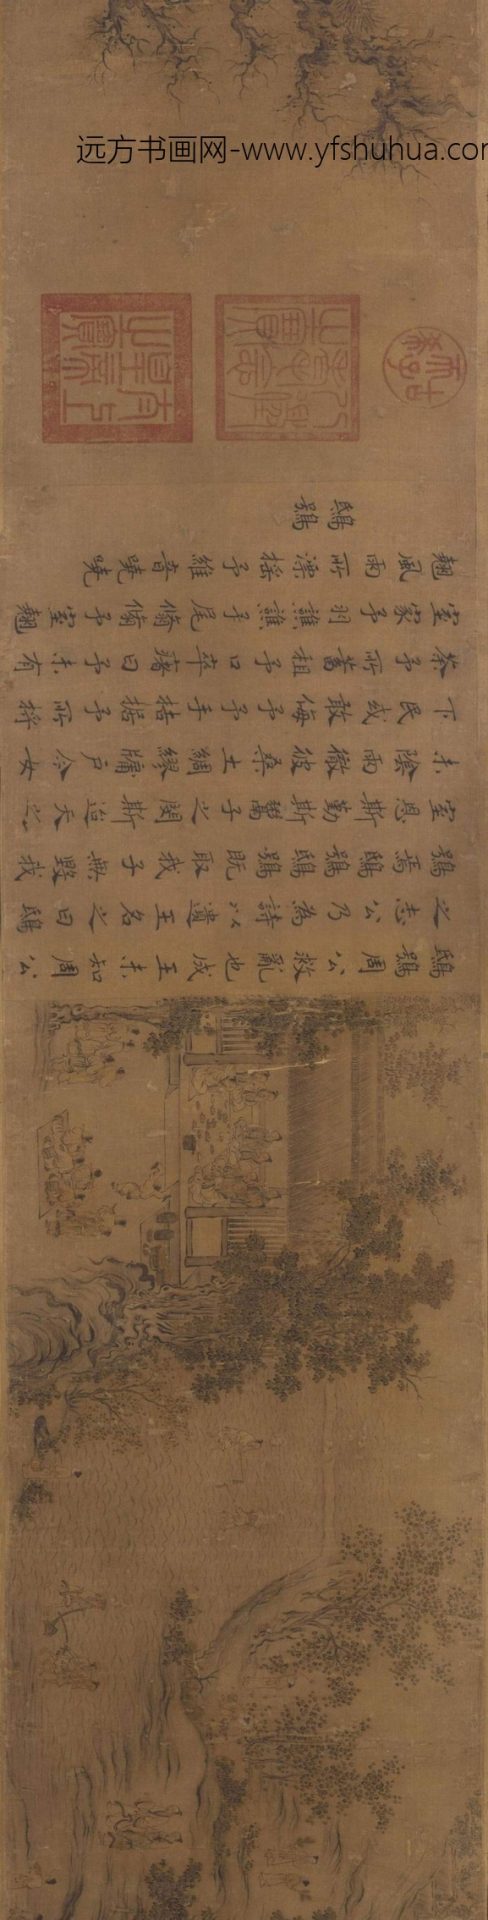 远方书画网-www.yfshuhua.com
鴟鴞周公救亂也成王未知周公
之志公乃為詩以遺王名之曰鴟
鴞焉鴟鴞鴟鴞既取我子無毀我
室恩斯勤斯鬻子之閔斯迨天之
未陰雨徹彼桑土綢繆牖戶今女
下民或敢侮予予手拮据予所捋
荼予所蓄租予口卒瘏曰予未有
室家予羽譙譙予尾翛翛予室翹
翹風雨所漂搖予維音嘵嘵
鴟鴞
古希天子
八徵耄念之寶
太上皇帝之寶